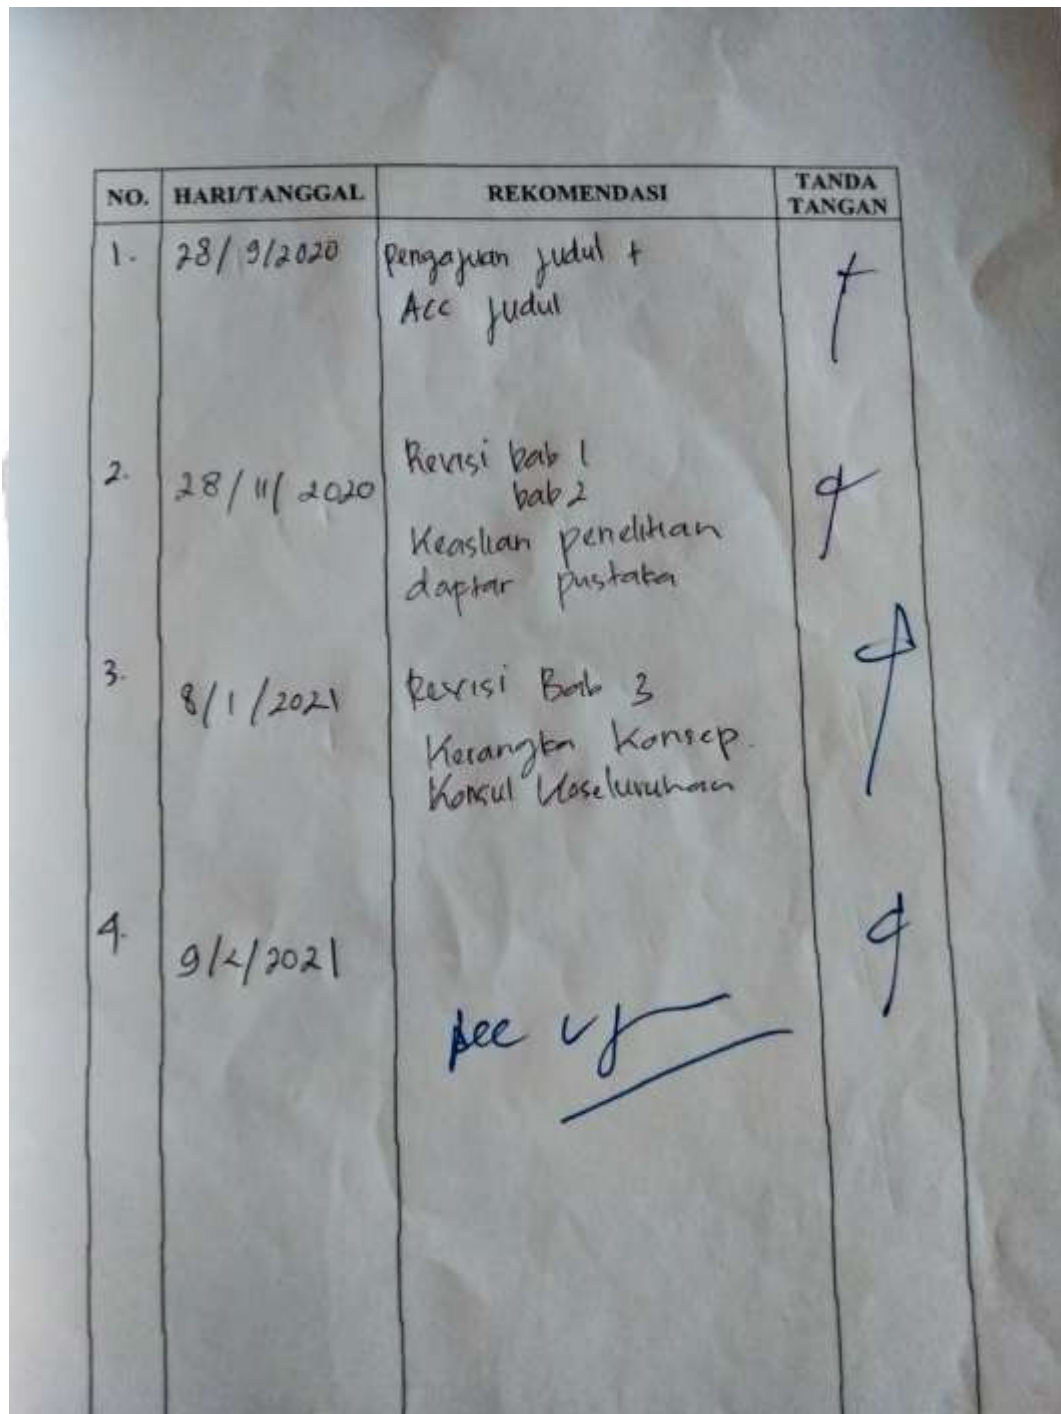 NO. HARI/TANGGAL REKOMENDASI TANDA TANGAN
1. 28/9/2020 Pengajuan judul +
Acc judul
2. 28/11/2020 Revisi bab 1
bab 2
Keaslian penelitian
daptar pustaka
3. 8/1/2021 Revisi Bab 3
Kerangka Konsep.
Konsul Keseluruhan
4. 9/2/2021
Acc